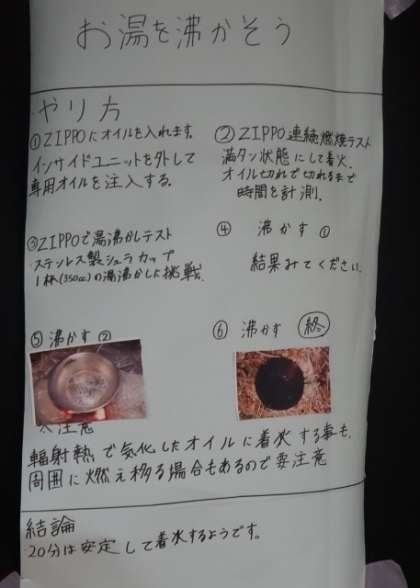 お湯を沸かそう
やり方
①ZIPPOにオイルを入れます。
インサイドユニットを外して
専用オイルを注入する。
②ZIPPO連続燃焼テスト
満タン状態にして着火。
オイル切れで切れるまで
時間を計測。
③ZIPPOで湯沸かしテスト
ステンレス製シェラカップ
1杯(350cc)の湯沸かしに挑戦。
④ 沸かす①
結果みてください。
⑤ 沸かす ②
⑥ 沸かす 終
注意
輻射熱で気化したオイルに着火する事も。
周囲に燃え移る場合もあるので要注意
結論
20分は安定して着火するようです。